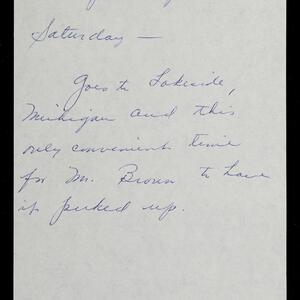 Saturday —
Goes to Lakeside,
Michigan and this
only convenient time
for Mr. Brown to have
it picked up.